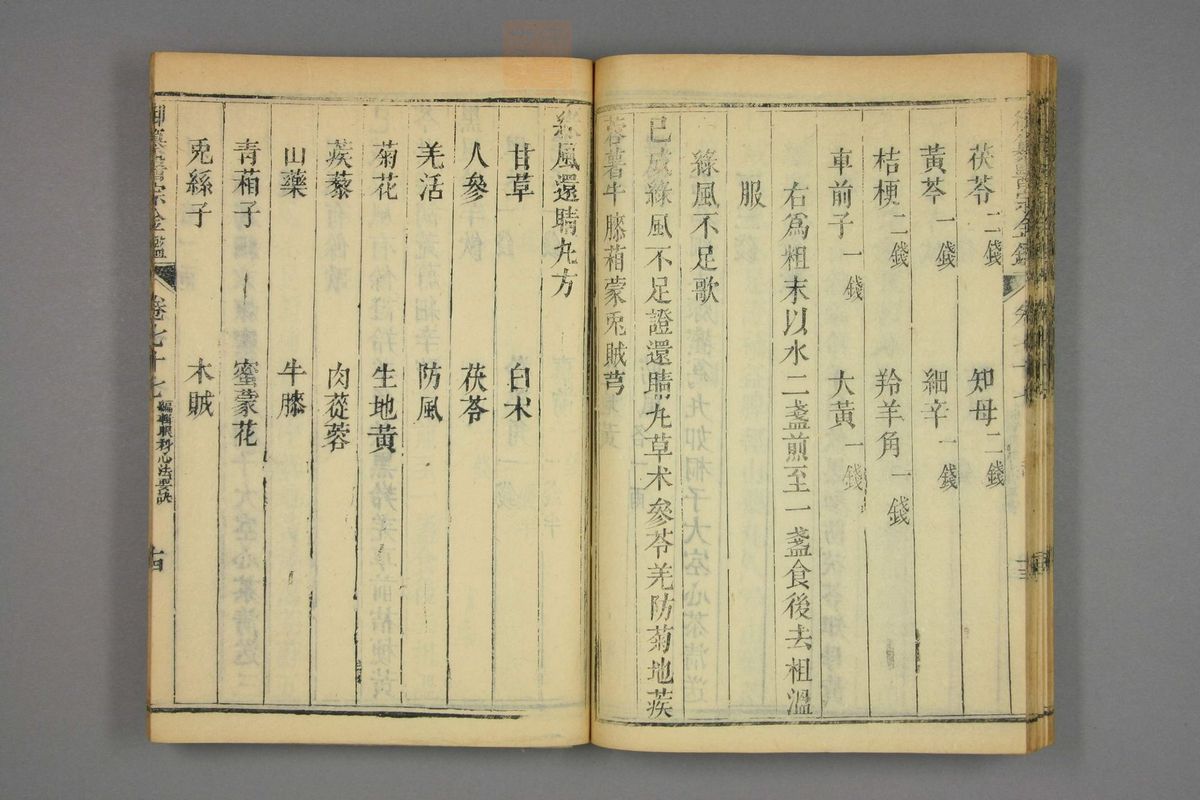 茯苓二錢 知母二錢
黃芩一錢 細辛一錢
桔梗二錢 羚羊角一錢
車前子一錢 大黃一錢
右爲粗末以水二盞煎至一盞食後去柤溫
服
綠風不足歌
已成綠風不足證還睛丸草朮參苓羌防菊地蒺
蓉薯牛膝葙蒙兎賊芎
綠風還睛丸方
甘草 白朮
人參 茯苓
羌活 防風
菊花 生地黃
蒺藜 肉蓯蓉
山藥 牛膝
青葙子 蜜蒙花
兎絲子 木賊
御纂醫宗金鑑 卷七十七 編輯眼科心法要訣 十四